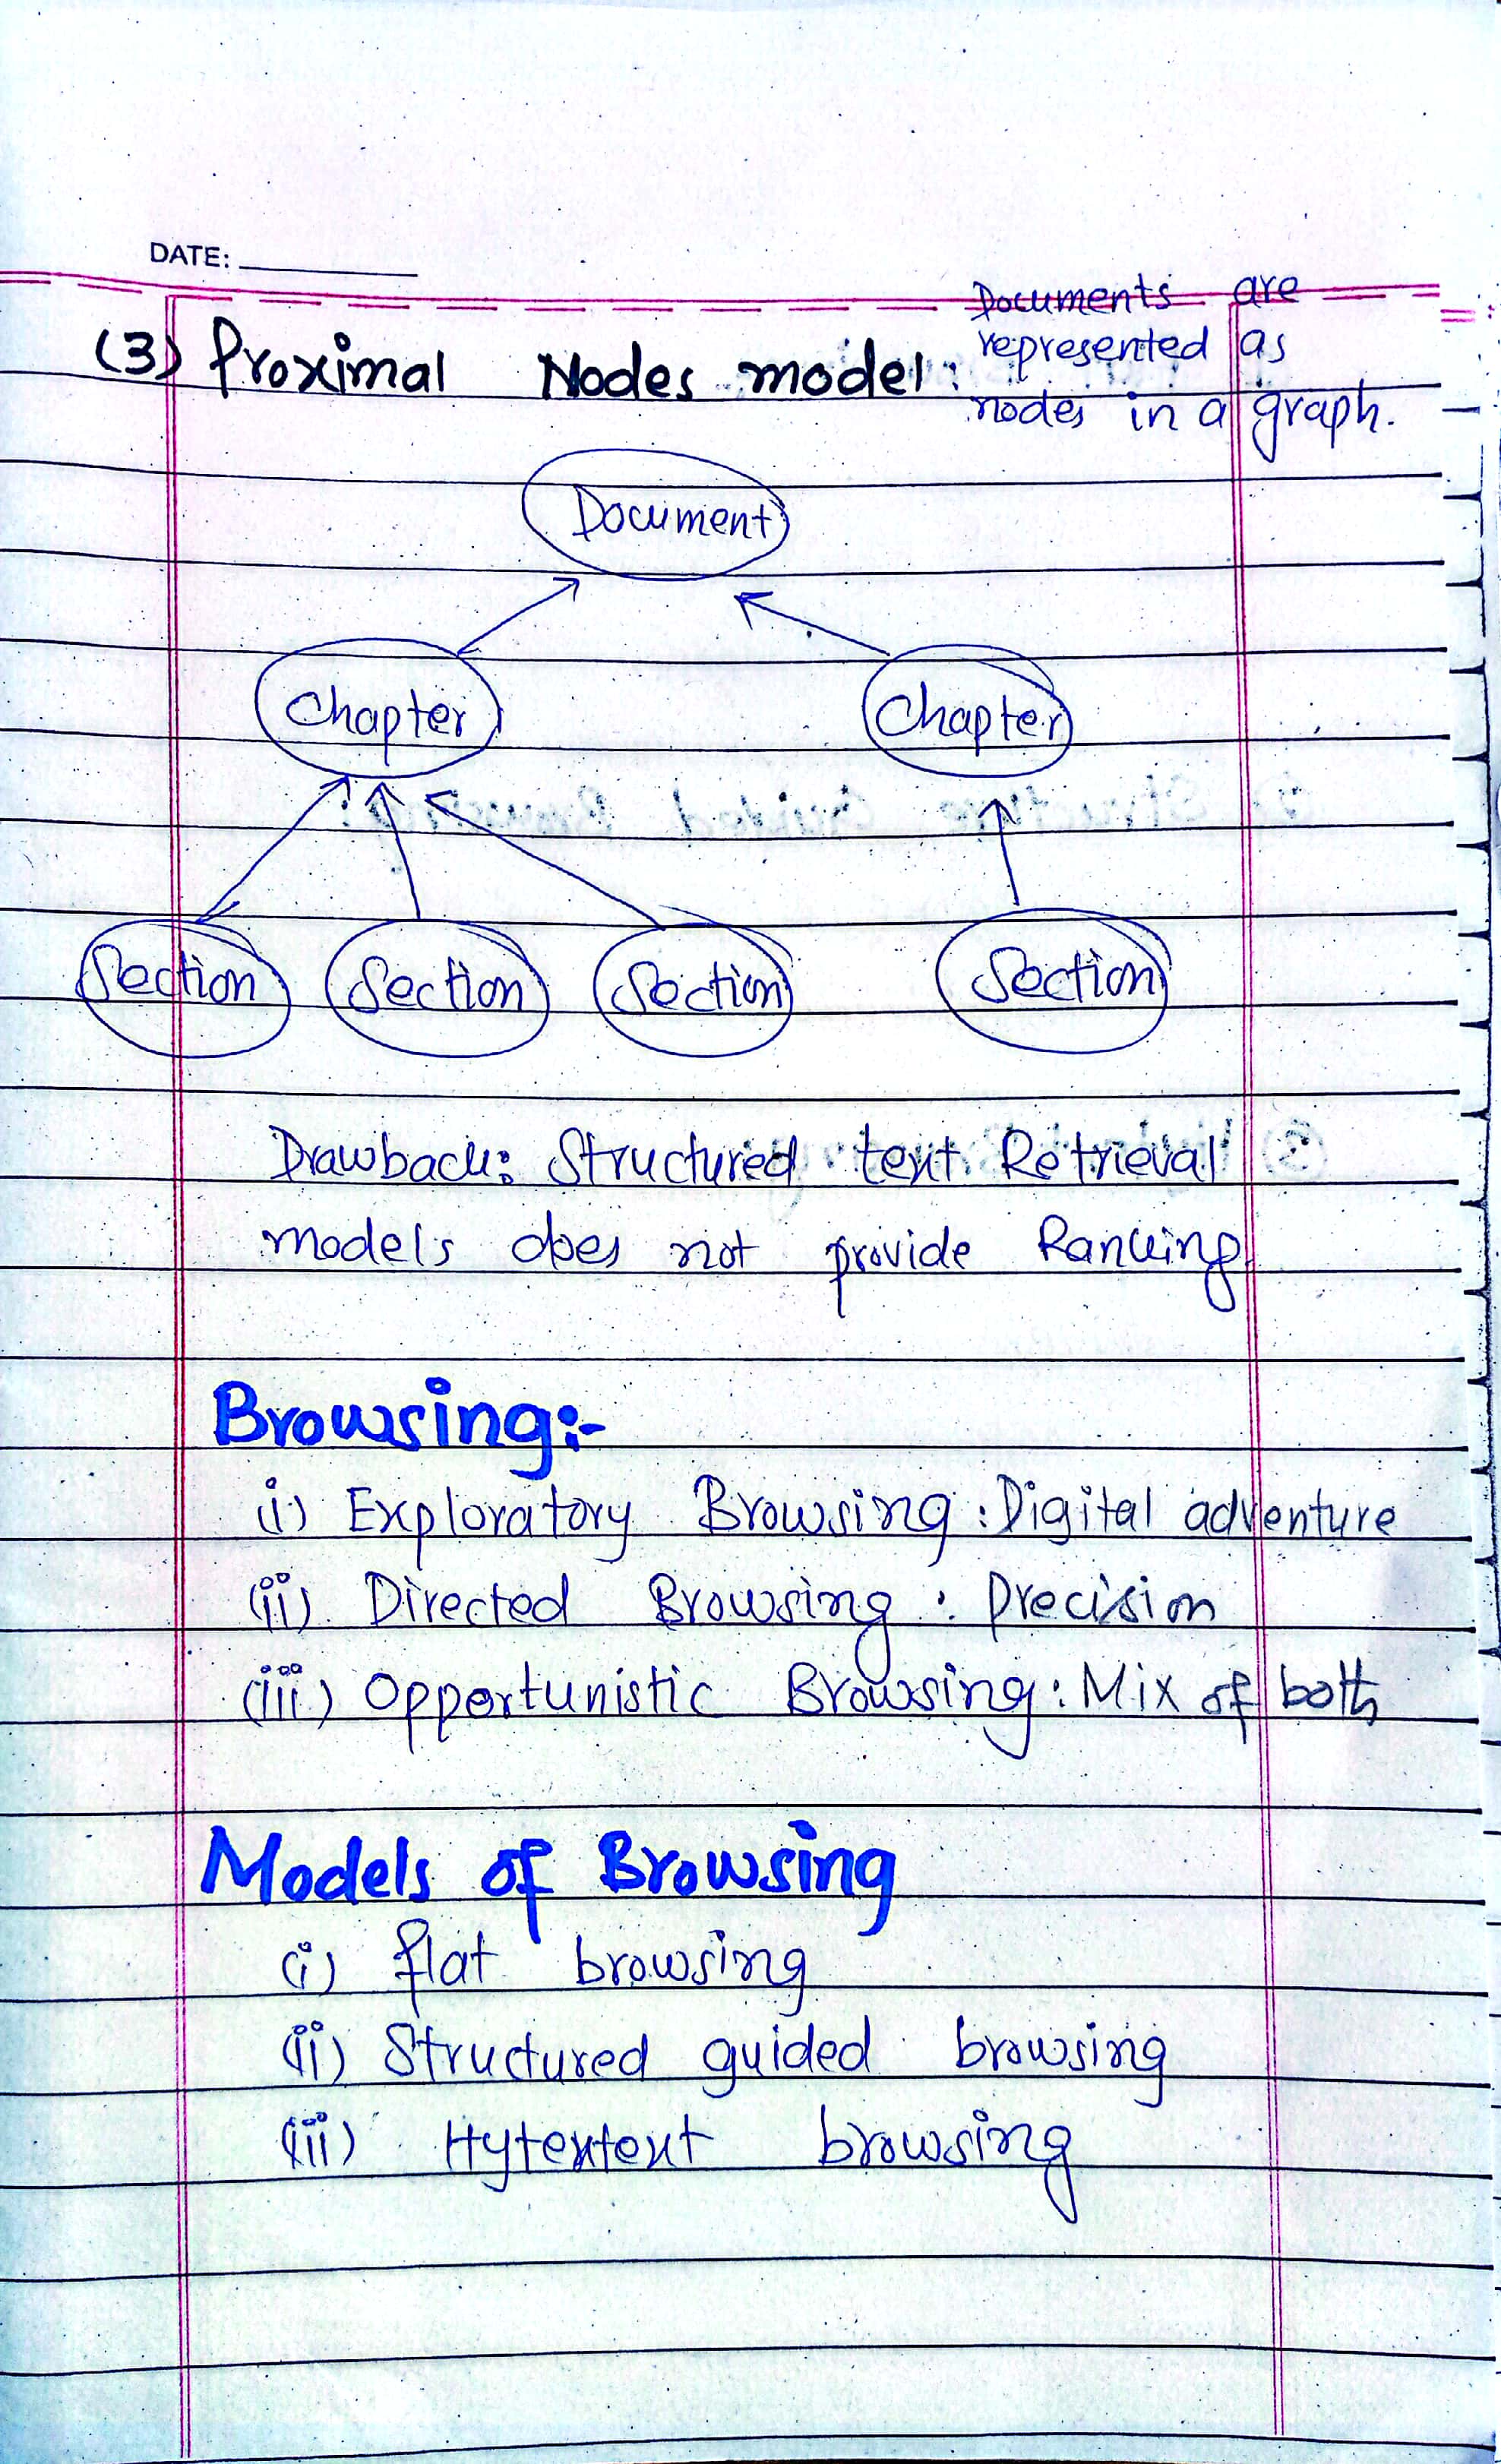 DATE:
(3) Proximal Nodes model: Documents are
represented as
nodes in a graph.
Document
Chapter Chapter
Section Section Section Section
Drawback: Structured text Retrieval
models does not provide Ranking
Browsing:-
(i) Exploratory Browsing: Digital adventure
(ii) Directed Browsing: Precision
(iii) Opportunistic Browsing: Mix of both
Models of Browsing
(i) flat browsing
(ii) Structured guided browsing
(iii) Hytextext browsing